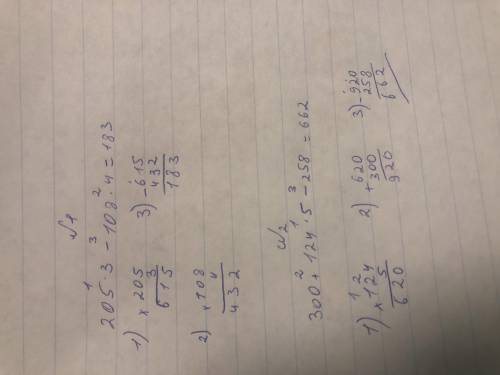 №1
205 · 3 - 108 · 4 = 183
1) × 205
3
615
3) - 615
432
183
2) × 108
4
432
№2
300 + 124 · 5 - 258 = 662
1) × 124
5
620
2) + 620
300
920
3) - 920
258
662